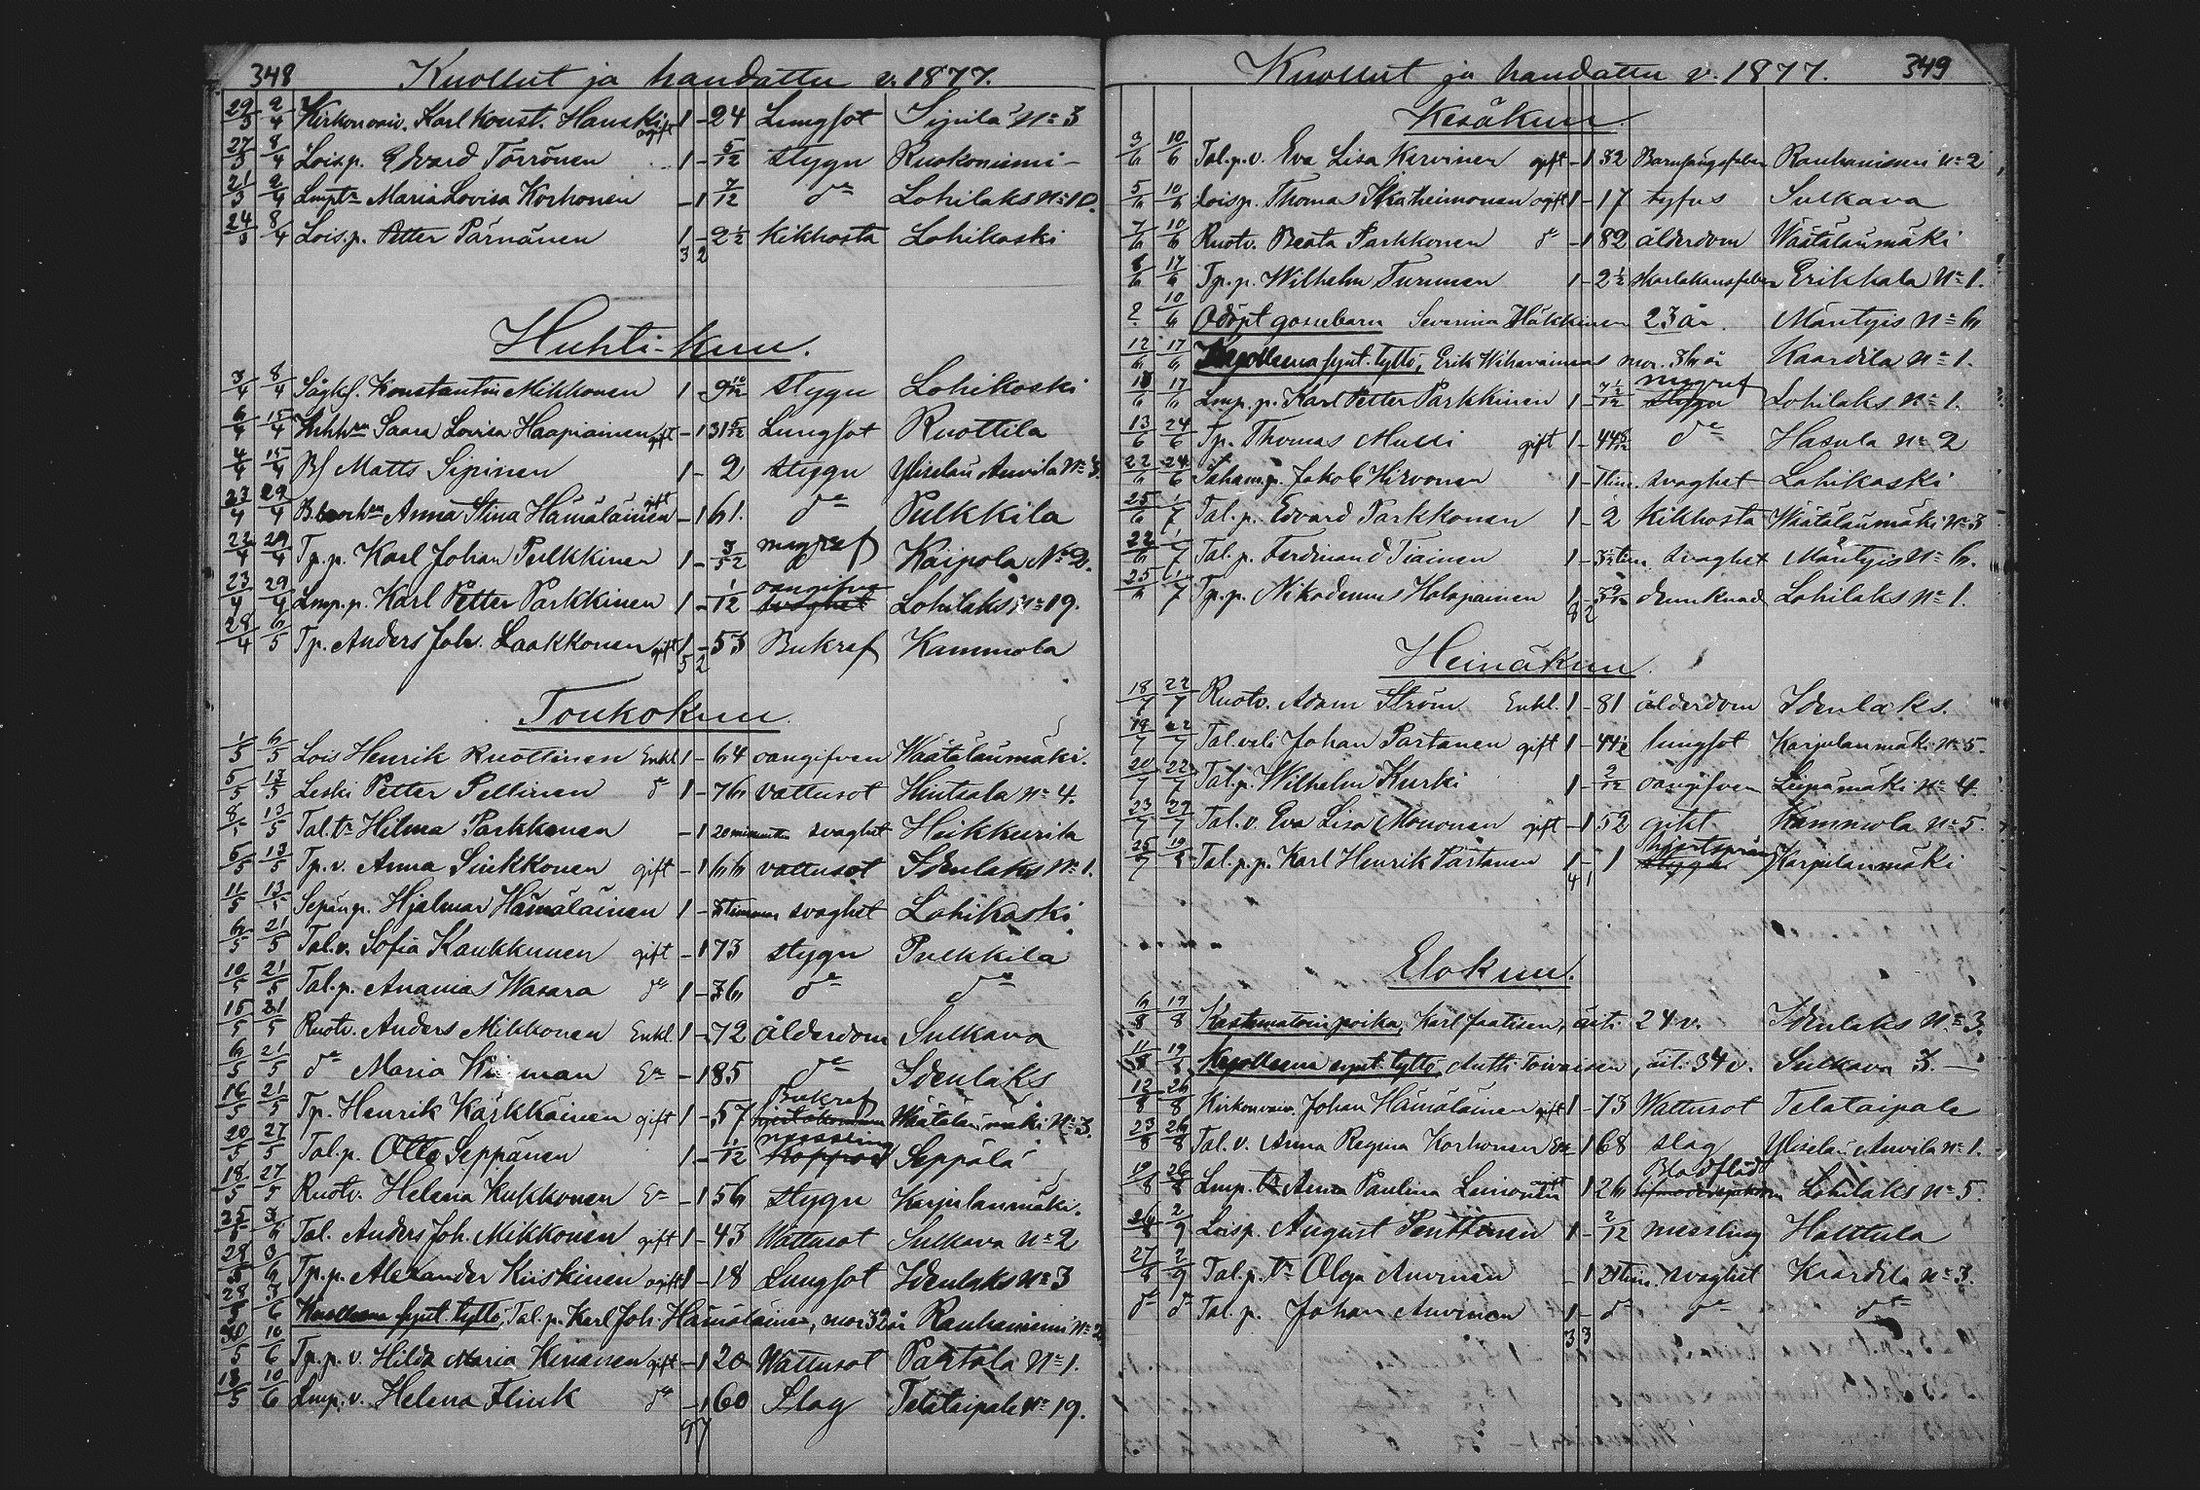 348 Kuollut ja haudattu v. 1877.
29/3 2/4 Kirkonvaiv. Karl Konst. Hauski ogift 1 - 24 Lungsot Sipila No 3
27/3 8/4 Loisp. Edvard Törrönen 1 - 5/12 stygn Ruokoniemi -
21/3 2/4 Lmptr Maria Lovisa Korhonen - 1 7/12 do Lohilaks No 10.
24/3 8/4 Lois.p. Petter Pärnänen 1 - 2 1/2 kikhosta Lohikoski
3 2
Huhti-kuu.
3/4 8/4 Sågkf. Konstantin Mikkonen 1 - 9 10/12 stygn Lohikoski
6/4 15/4 Saara Lovisa Haapiainen gift - 1 31 Lungsot Ruottila
4/4 15/4 Matts Sipinen 1 - 2 stygn Yliselän Auvila No 3
27/4 29/4 Anna Stina Hämäläinen gift - 1 61. do Pulkkila
22/4 29/4 Tp.p. Karl Johan Pulkkinen 1 - 3/52 magref Kaipola No 2.
23/4 29/4 Lmp.p. Karl Petter Parkkinen 1 - 1/12 oangifven svaghet Lohilaks No 19.
28/4 6/5 Tp. Anders Joh. Laakkonen gift 1 - 53 Bukref Kammola
5 2
Toukokuu.
1/5 6/5 Lois Henrik Ruottinen Enkl 1 - 64 oangifven Wäätälänmäki.
5/5 13/5 Leski Petter Peltinen do 1 - 76 vattusot Hintsala No 4.
8/5 13/5 Tal.tr Hilma Parkkonen - 1 20 minuter svaghet Heikkurila
5/5 13/5 Tp.v. Anna Sinkkonen gift - 1 66 vattusot Idenlaks No 1.
11/5 13/5 Sepän p. Hjalmar Hämäläinen 1 - timmar svaghet Lohikoski
6/5 21/5 Tal.v. Sofia Kaukkunen gift - 1 73 stygn Pulkkila
10/5 21/5 Tal.p. Ananias Wasara do 1 - 36 do do
15/5 21/5 Ruotv. Anders Mikkonen Enkl. 1 - 72 ålderdom Sulkava
6/5 21/5 do Maria En - 1 85 do Idenlaks
16/5 21/5 Tp. Henrik Kärkkäinen gift 1 - 57 Bukref Wäätälänmäki No 3.
20/5 27/5 Tal.p. Otto Seppänen 1 - 1/12 messling koppor Seppälä
18/5 27/5 Ruotv. Helena Kukkonen En - 1 56 stygn Karjulanmäki.
25/5 3/6 Tal. Anders Joh. Mikkonen gift 1 - 43 Wattusot Sulkava No 2
28/5 3/6 Tp.p. Alexander Kiiskinen ogift 1 - 18 Lungsot Idenlaks No 3
28/5 3/6 Kuolleena synt. tyttö, Tal.p. Karl Joh. Hämäläinen, mor 32 år Rauhaniemi No 2
30/5 10/6 Tp.p.v. Hilda Maria Keinänen gift - 1 20 Wattusot Partala No 1.
13/5 10/6 Lmp.v. Helena Flink do - 1 60 Slag Telataipale No 19.
9 7
Kuollut ja haudattu v. 1877. 349
Kesäkuu
3/6 10/6 Tal.p.v. Eva Lisa Kervinen gift - 1 32 Barnsängsfeber Rauhaniemi No 2
5/6 10/6 Loisp. Thomas Ikäheimonen ogift 1 - 17 tyfus Sulkava
7/6 10/6 Ruotv. Beata Parkkonen do - 1 82 ålderdom Wäätälänmäki
8/6 17/6 Tp.p. Wilhelm Turunen 1 - 2 1/2 skarlakansfeber Erikkala No 1.
2 10/6 Odöpt gossebarn Severina Häkkinen 23 år. Mäntyis No 6
12/6 17/6 Kuolleena synt. tyttö, Erik Wihavainens mor. år Kaartila No 1.
13/6 17/6 Lmp.p. Karl Petter Parkkinen 1 - magref stygn Lohilaks No 1.
13/6 24/6 Tp. Thomas Mussi gift 1 - 44 do Hasula No 2
22/6 24/6 Sahanp. Jakob Hirvonen 1 - 1 tim. svaghet Lohikoski
25/6 1/7 Tal.p. Edvard Parkkonen 1 - 2 kikhosta Wäätälänmäki No 3
22/6 1/7 Tal.p. Ferdinand Tiainen 1 - tim svaghet Mäntyis No 6.
25/6 1/7 Tp.p. Nikodemus Holopainen 1 - 3 drunknad Lohilaks No 1.
8 2
Heinäkuu.
18/7 22/7 Ruotv. Adam Ström Enkl. 1 - 81 ålderdom Idenlaks.
19/7 22/7 Tal.veli Johan Partanen gift 1 - 44 1/2 lungsot Karjulanmäki No 5.
20/7 22/7 Tal.p. Wilhelm Kurki 1 - 9/12 oangifven Leipämäki No 4
23/7 29/7 Tal.v. Eva Lisa Mononen gift - 1 52 gikt Kammola No 5.
25/7 19/8 Tal.p.p. Karl Henrik Partanen 1 - 1 stygn Karjulanmäki
4 1
Elokuu.
6/8 19/8 Kastamatoin poika, Karl Jantisen, äiti 24 v. Idenlaks No 3.
11/8 19/8 Kuolleena synt. tyttö, Antti Toivaisen, äiti 34 v. Sulkava 3. -
12/8 26/8 Kirkonvaiv. Johan Hämäläinen gift 1 - 73 Wattusot Telataipale
23/8 26/8 Tal.v. Anna Regina Korhonen En - 1 68 slag Yliselän Auvila No 1.
19/8 26/8 Lmp.tr Anna Paulina Leinonen ogift 1 26 Blodflöd Lohilaks No 5.
26/8 2/9 Loisp. August Penttinen 1 - 2/12 messling Halttula
27/8 2/9 Tal.p.tr Olga Auvinen - 1 tim. svaghet Kaartila No 3.
do do Tal.p. Johan Auvinen 1 - do do do
3 3